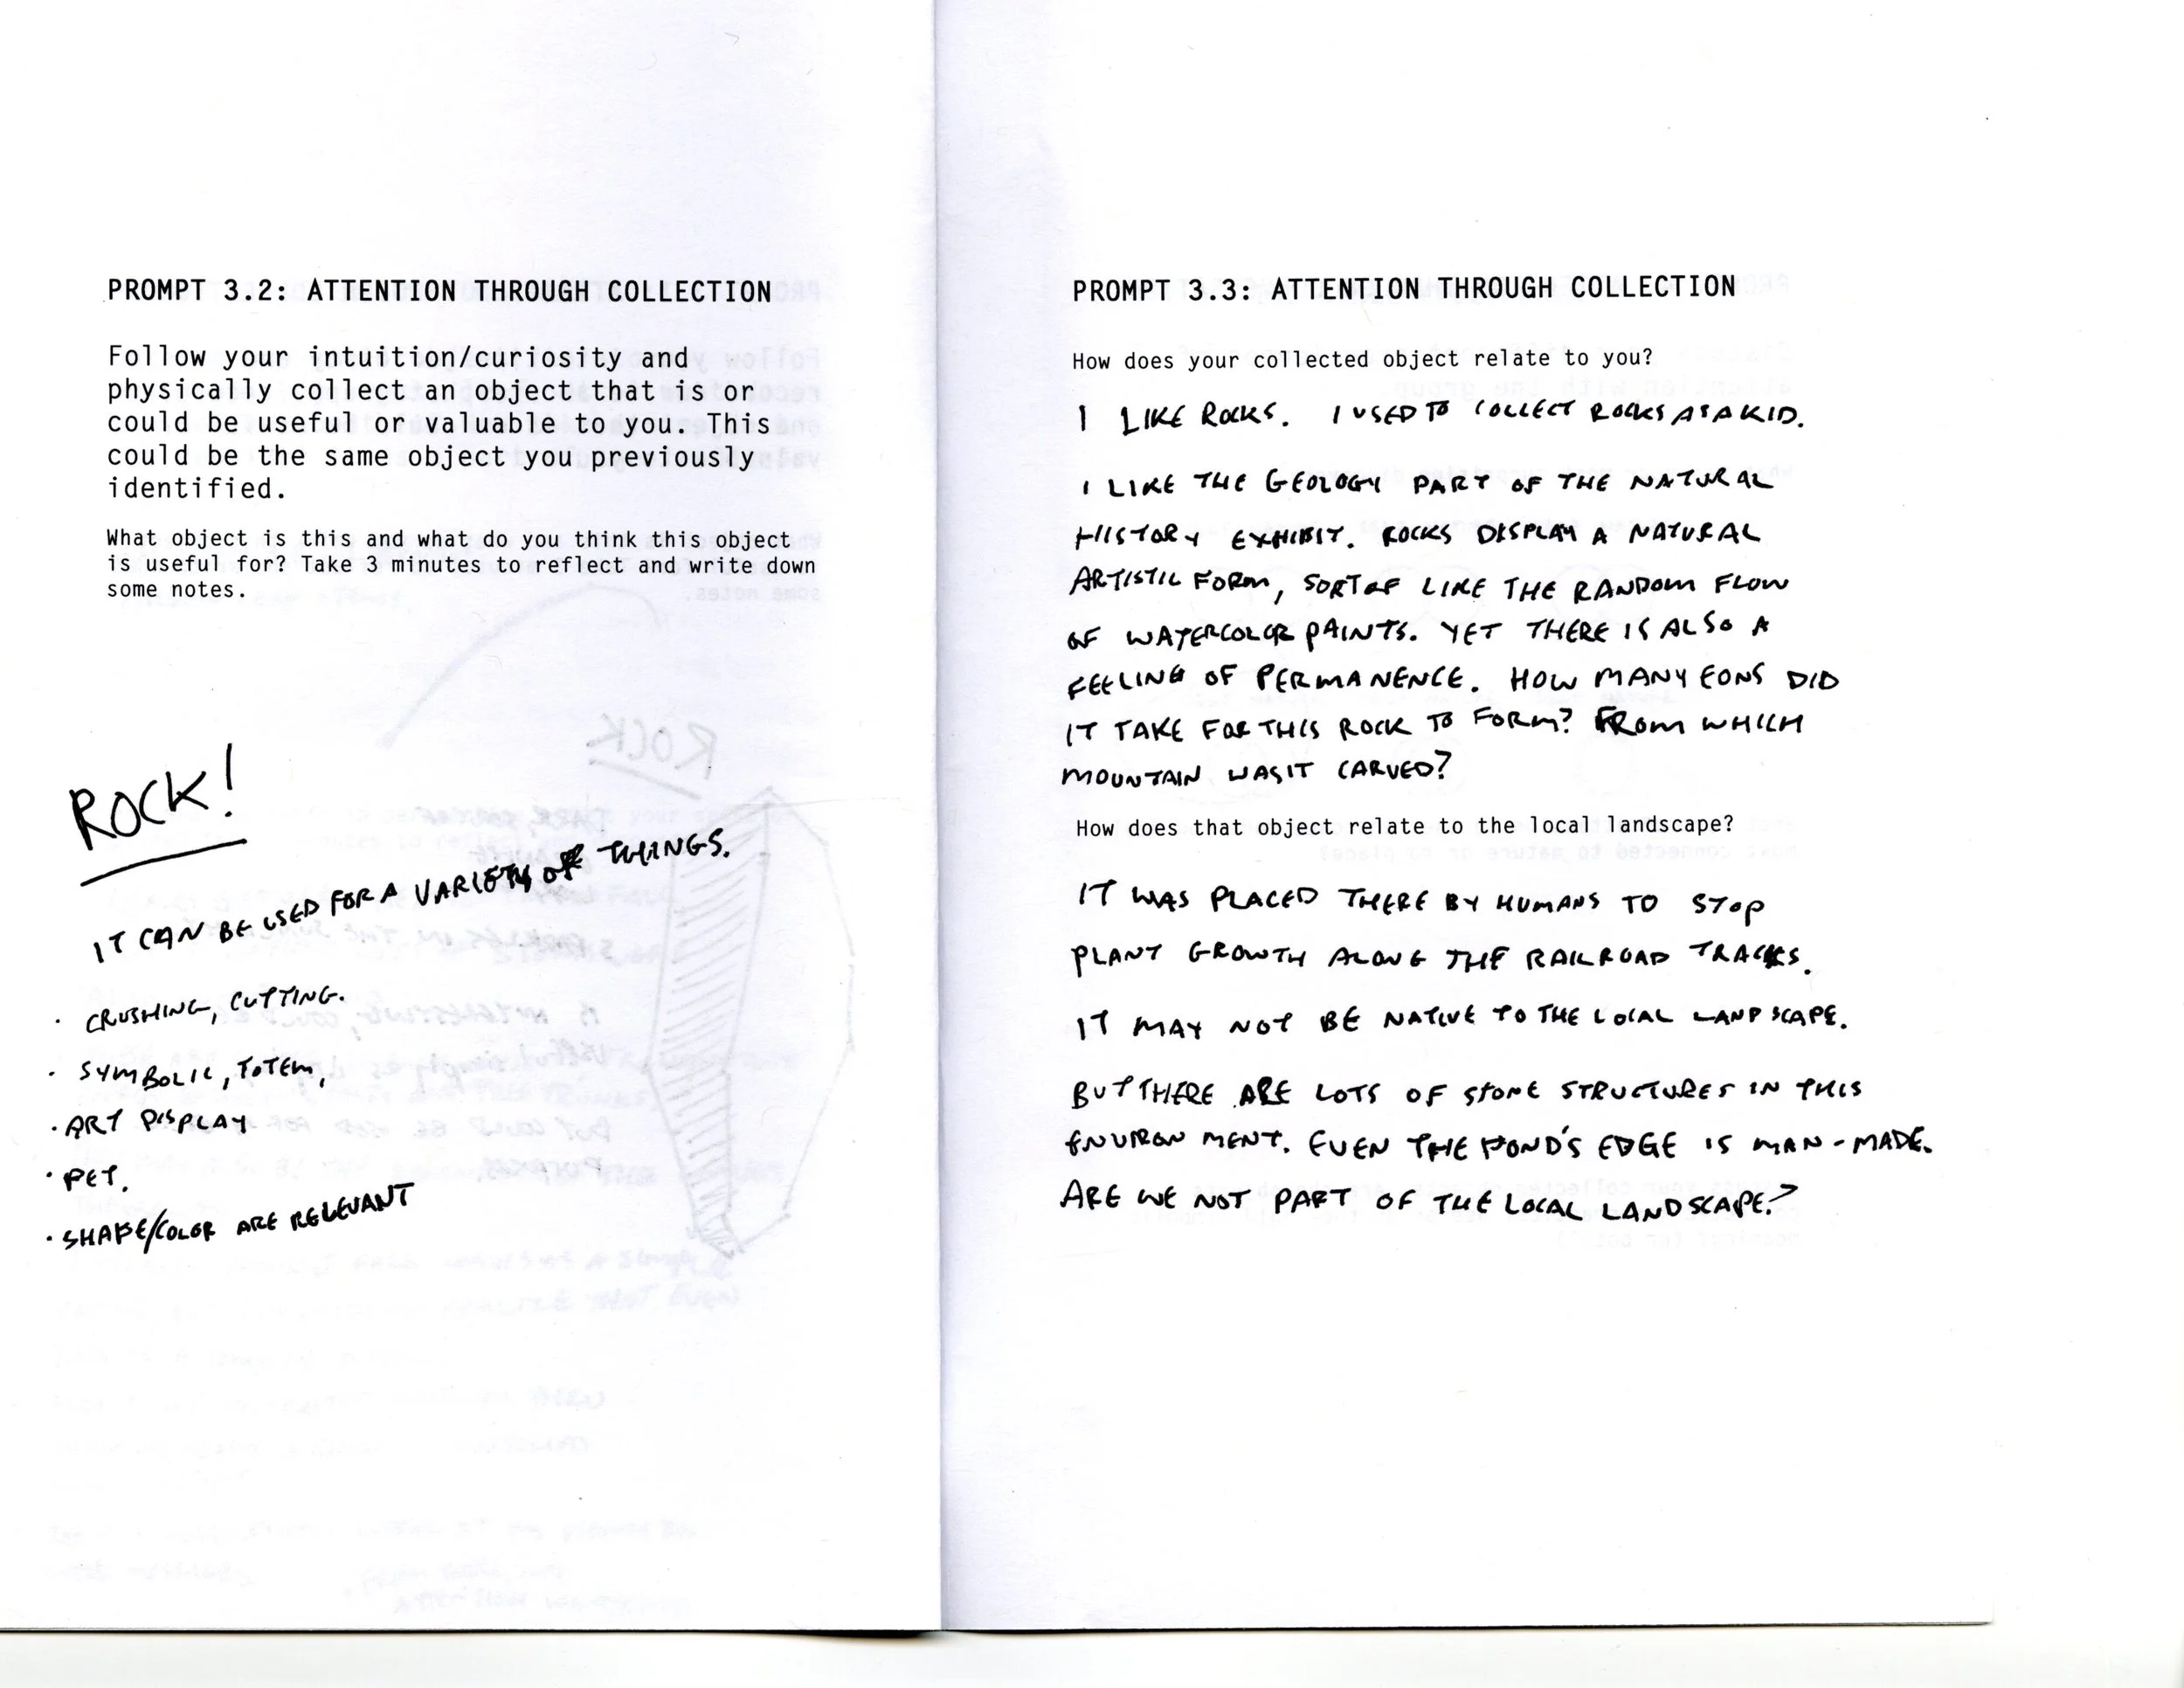 PROMPT 3.2: ATTENTION THROUGH COLLECTION
Follow your intuition/curiosity and
physically collect an object that is or
could be useful or valuable to you. This
could be the same object you previously
identified.
What object is this and what do you think this object
is useful for? Take 3 minutes to reflect and write down
some notes.
ROCK!
IT CAN BE USED FOR A VARIETY OF THINGS.
· CRUSHING, CUTTING.
· SYMBOLIC, TOTEM,
· ART DISPLAY
· PET.
· SHAPE/COLOR ARE RELEVANT
ROCK
PROMPT 3.3: ATTENTION THROUGH COLLECTION
How does your collected object relate to you?
I LIKE ROCKS. I USED TO COLLECT ROCKS AS A KID.
I LIKE THE GEOLOGY PART OF THE NATURAL
HISTORY EXHIBIT. ROCKS DISPLAY A NATURAL
ARTISTIC FORM, SORT OF LIKE THE RANDOM FLOW
OF WATERCOLOR PAINTS. YET THERE IS ALSO A
FEELING OF PERMANENCE. HOW MANY EONS DID
IT TAKE FOR THIS ROCK TO FORM? FROM WHICH
MOUNTAIN WAS IT CARVED?
How does that object relate to the local landscape?
IT WAS PLACED THERE BY HUMANS TO STOP
PLANT GROWTH ALONG THE RAILROAD TRACKS.
IT MAY NOT BE NATIVE TO THE LOCAL LANDSCAPE.
BUT THERE ARE LOTS OF STONE STRUCTURES IN THIS
ENVIRONMENT. EVEN THE POND'S EDGE IS MAN-MADE.
ARE WE NOT PART OF THE LOCAL LANDSCAPE?